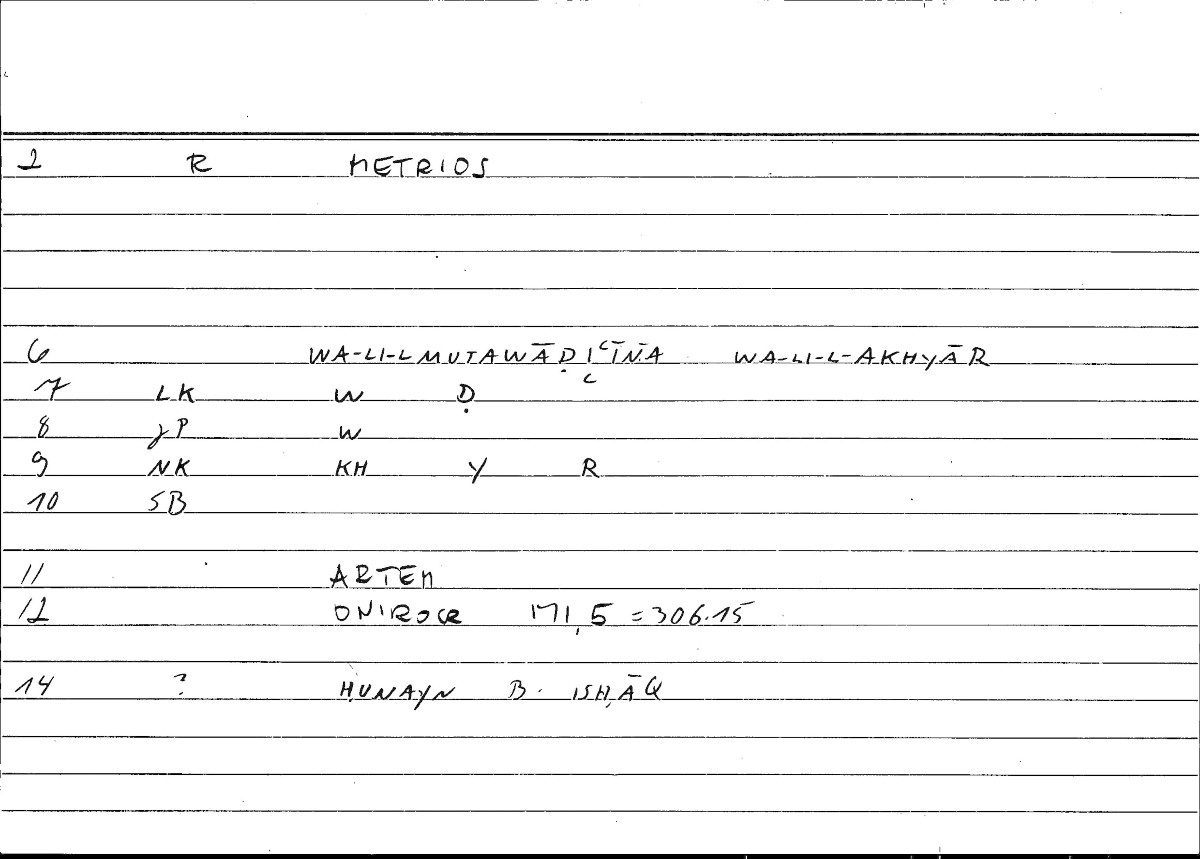 2 R METRIOS
6 WA-LI-LMUTAWĀḌIʿĪNA WA-LI-L-AKHYĀR
7 LK W Ḍ ʿ
8 JP W
9 NK KH Y R
10 SB
11 ARTEM
12 ONIROCR 171,5 = 306.15
14 ? ḤUNAYN B. ISḤĀQ